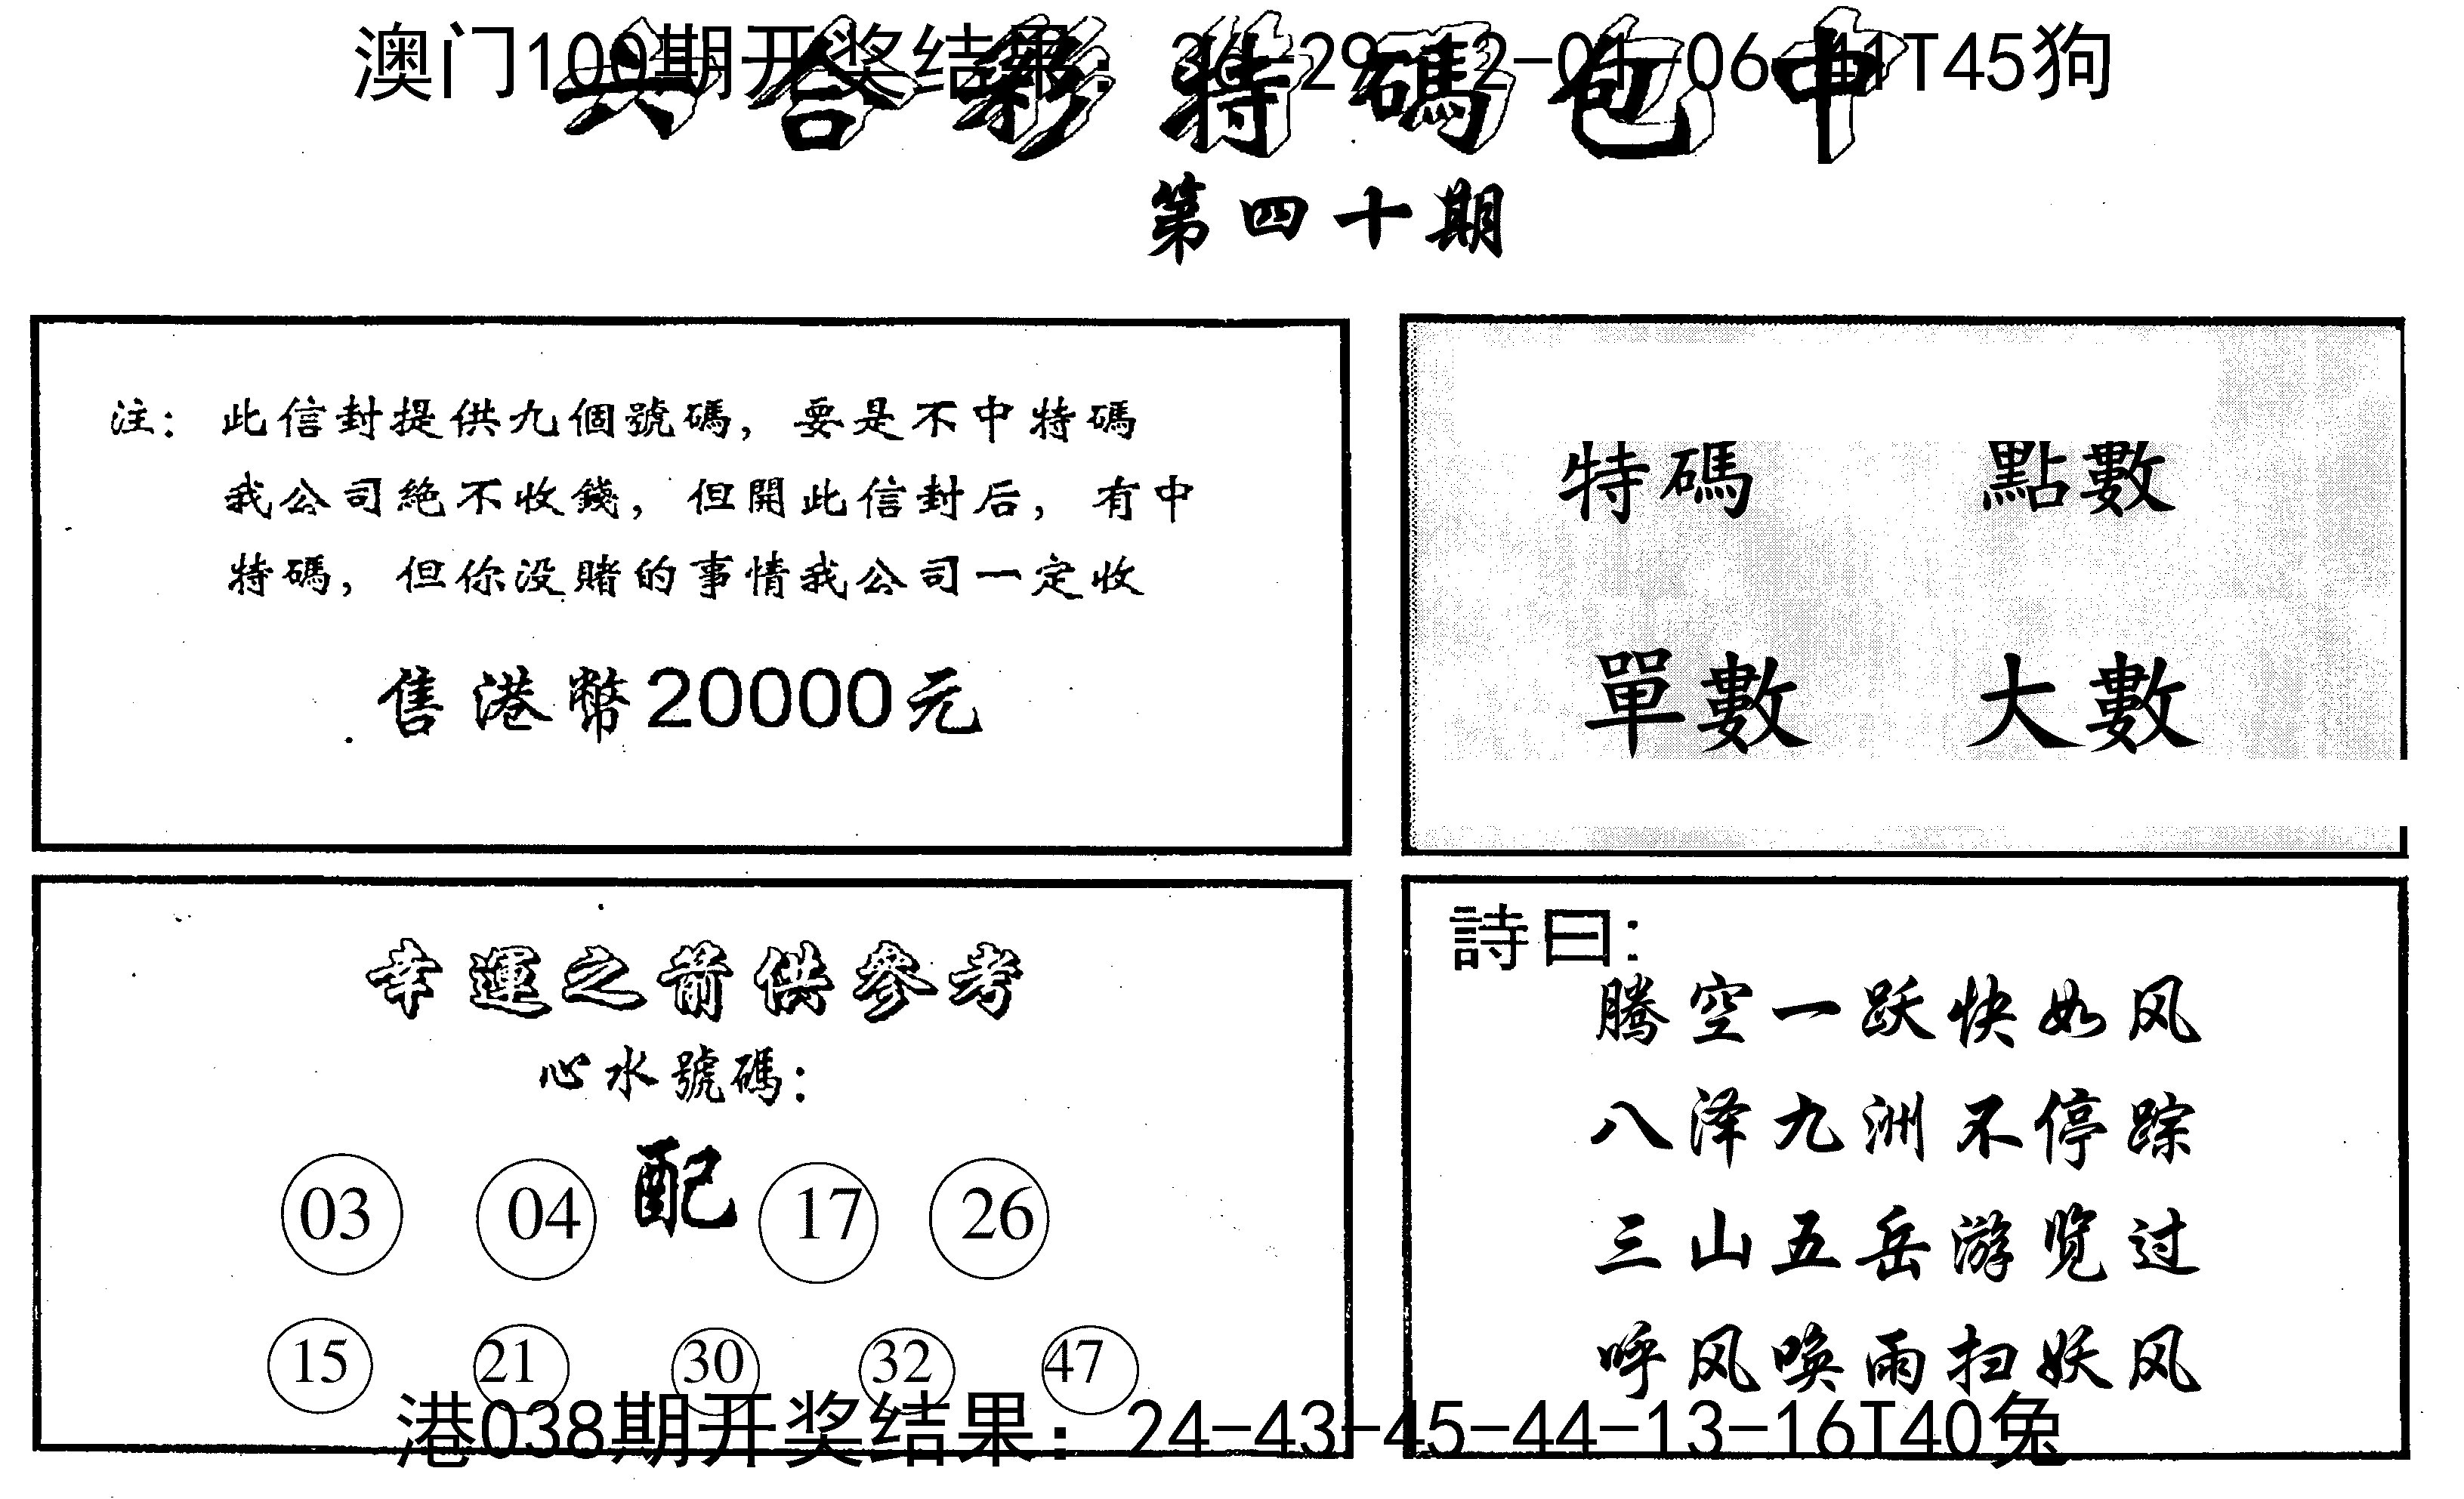 澳门100期开奖结果：29-12-01-06-41T45狗
六合彩特碼包中
第四十期
注：此信封提供九個號碼，要是不中特碼
我公司絶不收錢，但開此信封后，有中
特碼，但你没賭的事情我公司一定收
售港幣20000元
特碼 點數
單數 大數
幸運之箭供參考
心水號碼：
03 04 配 17 26
15 21 30 32 47
詩曰：
腾空一跃快如风
八泽九洲不停踪
三山五岳游览过
呼风唤雨扫妖风
港038期开奖结果：24-43-45-44-13-16T40兔